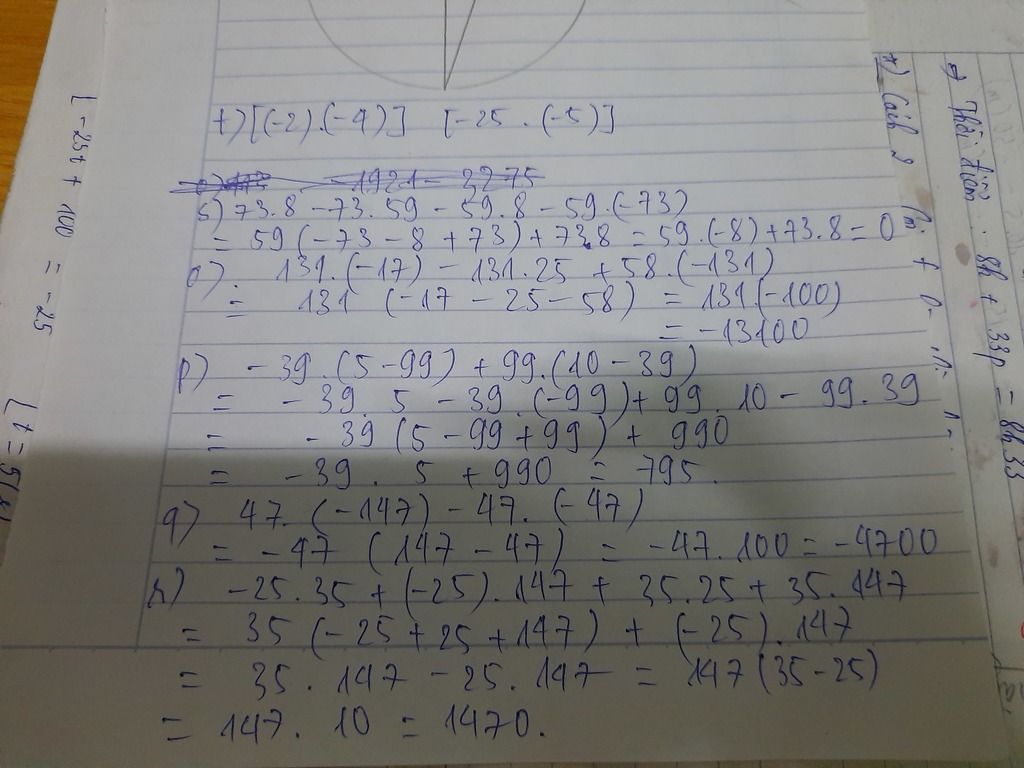 t) [(-2).(-4)] [-25.(-5)]
s) 73.8 - 73.59 - 59.8 - 59.(-73)
= 59(-73 - 8 + 73) + 73.8 = 59.(-8) + 73.8 = 0
o) 131.(-17) - 131.25 + 58.(-131)
= 131 (-17 - 25 - 58) = 131(-100)
= -13100
p) -39.(5-99) + 99.(10-39)
= -39.5 - 39.(-99) + 99.10 - 99.39
= -39 (5 - 99 + 99) + 990
= -39.5 + 990 = 795.
q) 47.(-147) - 47.(-47)
= -47 (147 - 47) = -47.100 = -4700
r) -25.35 + (-25).147 + 35.25 + 35.147
= 35 (-25 + 25 + 147) + (-25).147
= 35.147 - 25.147 = 147(35-25)
= 147.10 = 1470.
[-25t + 100 = -25
[t = 5
Cách 2
8h + 33p = 8h33